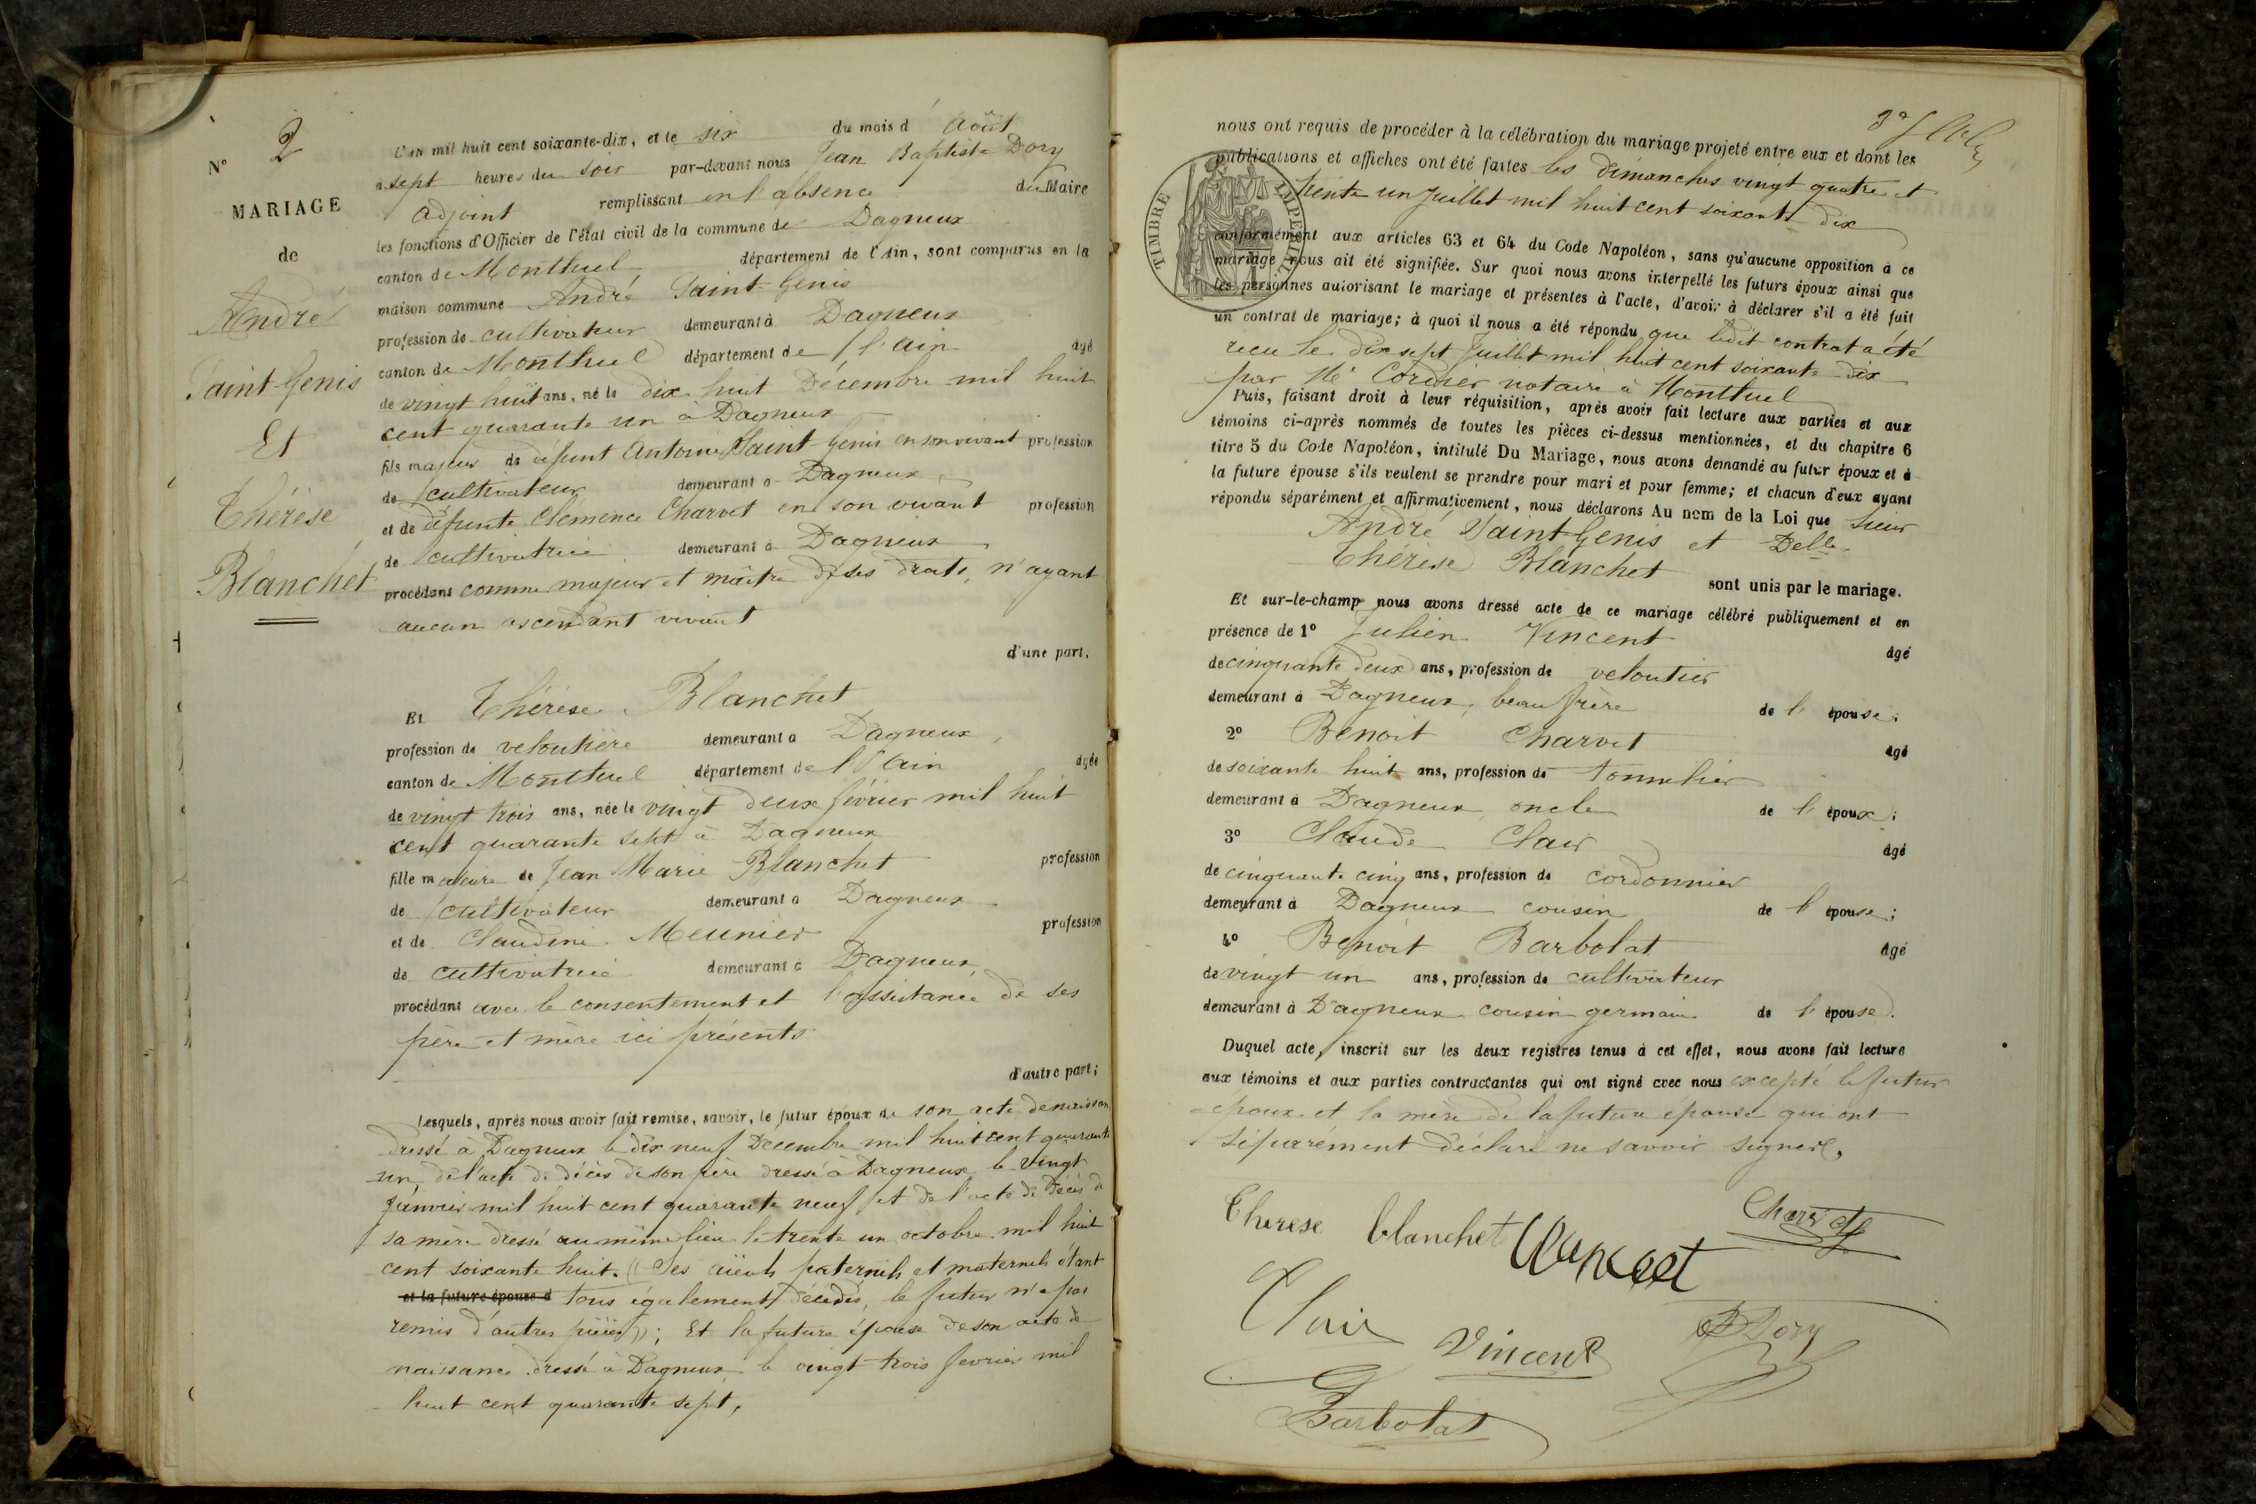 N° 2
MARIAGE
de
André
Saint-Genis
Et
Thérèse
Blanchet
L'an mil huit cent soixante-dix, et le six du mois d'Août
a sept heures du soir par-devant nous Jean Baptiste Dory
adjoint remplissant en l'absence du Maire
les fonctions d'Officier de l'état civil de la commune de Dagneux
canton de Montluel département de l'Ain, sont comparus en la
maison commune André Saint-Genis
profession de cultivateur demeurant à Dagneux
canton de Montluel département de l'Ain âgé
de vingt huit ans, né le dix huit Décembre mil huit
cent quarante un à Dagneux
fils majeur de défunt Antoine Saint Genis en son vivant profession
de cultivateur demeurant a Dagneux
et de défunte Clémence Charvet en son vivant profession
de cultivatrice demeurant à Dagneux
procédant comme majeur et maître de ses droits, n'ayant
aucun ascendant vivant
d'une part.
Et Thérèse Blanchet
profession de veloutière demeurant a Dagneux,
canton de Montluel département de l'Ain âgée
de vingt trois ans, née le vingt deux février mil huit
cent quarante sept à Dagneux
fille majeure de Jean Marie Blanchet profession
de cultivateur demeurant a Dagneux
et de Claudine Meunier profession
de cultivatrice demeurant a Dagneux
procédant avec le consentement et l'assistance de ses
père et mère ici présents
d'autre part;
Lesquels, après nous avoir fait remise, savoir, le futur époux de son acte de naissance
dressé à Dagneux le dix neuf Décembre mil huit cent quarante
un, de l'acte de décès de son père dressé à Dagneux le vingt
Janvier mil huit cent quarante neuf et de l'acte de décès de
sa mère dressé au même lieu le trente un octobre mil huit
cent soixante huit. (Ses aïeuls paternels et maternels étant
et la future épouse d tous également décédés, le futur n'a pas
remis d'autres pièces); Et la future épouse de son acte de
naissance dressé à Dagneux le vingt trois fevrier mil
huit cent quarante sept,
TIMBRE IMPÉRIAL
nous ont requis de procéder à la célébration du mariage projeté entre eux et dont les
publications et affiches ont été faites les dimanches vingt quatre et
trente un Juillet mil huit cent soixante dix
conformément aux articles 63 et 64 du Code Napoléon, sans qu'aucune opposition à ce
mariage nous ait été signifiée. Sur quoi nous avons interpellé les futurs époux ainsi que
les personnes autorisant le mariage et présentes à l'acte, d'avoir à déclarer s'il a été fait
un contrat de mariage; à quoi il nous a été répondu que ledit contrat a été
recu le dix sept Juillet mil huit cent soixante dix
par Me Cordier notaire à Montluel
Puis, faisant droit à leur réquisition, après avoir fait lecture aux parties et aux
témoins ci-après nommés de toutes les pièces ci-dessus mentionnées, et du chapitre 6
titre 5 du Code Napoléon, intitulé Du Mariage, nous avons demandé au futur époux et à
la future épouse s'ils veulent se prendre pour mari et pour femme; et chacun d'eux ayant
répondu séparément et affirmativement, nous déclarons Au nom de la Loi que Sieur
André Saint-Genis et Delle
Thérèse Blanchet sont unis par le mariage.
Et sur-le-champ nous avons dressé acte de ce mariage célébré publiquement et en
présence de 1° Julien Vincent âgé
de cinquante deux ans, profession de veloutier
demeurant à Dagneux, beau frère de l'épouse;
2° Benoit Charvet âgé
de soixante huit ans, profession de tonnelier
demeurant à Dagneux, oncle de l'époux;
3° Claude Clair âgé
de cinquante cinq ans, profession de cordonnier
demeurant à Dagneux cousin de l'épouse;
4° Benoit Barbolat âgé
de vingt un ans, profession de cultivateur
demeurant à Dagneux cousin germain de l'épouse.
Duquel acte, inscrit sur les deux registres tenus à cet effet, nous avons fait lecture
aux témoins et aux parties contractantes qui ont signé avec nous excepté le futur
époux et la mère de la future épouse qui ont
séparément déclaré ne savoir signer.
Therese blanchet
Charvet
Clair Vincent Dory
Barbolat